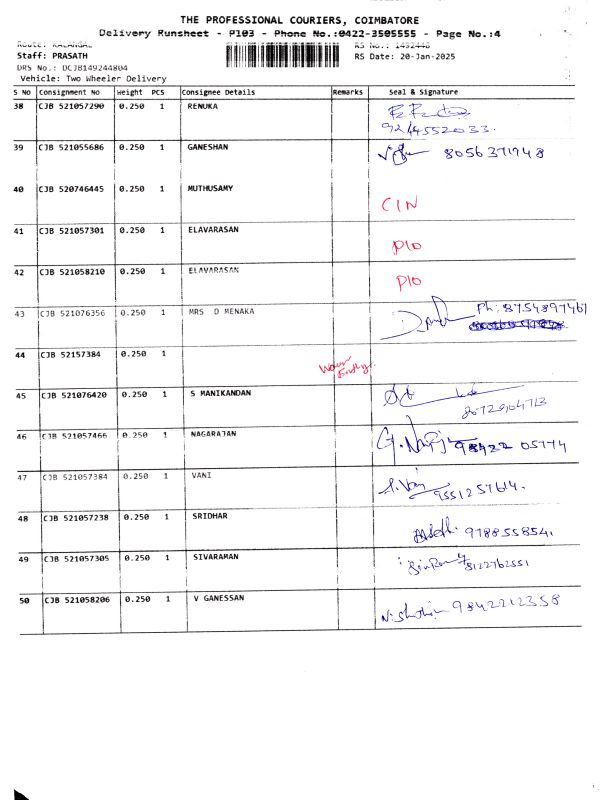 THE PROFESSIONAL COURIERS, COIMBATORE
Delivery Runsheet - P103 - Phone No.:0422-3505555 - Page No.:4
Route: KALANGAL RS No.: 1492448
Staff: PRASATH RS Date: 20-Jan-2025
DRS No.: DCJB149244804
Vehicle: Two Wheeler Delivery
S No Consignment No Weight PCS Consignee Details Remarks Seal & Signature
38 CJB 521057290 0.250 1 RENUKA
9244552033.
39 CJB 521055686 0.250 1 GANESHAN 8056371948
40 CJB 520746445 0.250 1 MUTHUSAMY
C/N
41 CJB 521057301 0.250 1 ELAVARASAN
P/O
42 CJB 521058210 0.250 1 ELAVARASAN
P/O
43 CJB 521076356 0.250 1 MRS D MENAKA Ph: 8754897461
44 CJB 52157384 0.250 1
45 CJB 521076420 0.250 1 S MANIKANDAN
46 CJB 521057466 0.250 1 NAGARAJAN
05774
47 CJB 521057384 0.250 1 VANI
S. Vani 9551257614.
48 CJB 521057238 0.250 1 SRIDHAR
9788558541.
49 CJB 521057305 0.250 1 SIVARAMAN
8122762551
50 CJB 521058206 0.250 1 V GANESSAN
9842212358